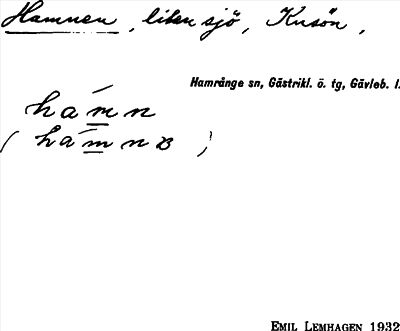 Hamnen, liten sjö, Kusön,
Hamrånge sn, Gästrikl. ö. tg, Gävleb. l.
hámn
(hámnɐ)
EMIL LEMHAGEN 1932